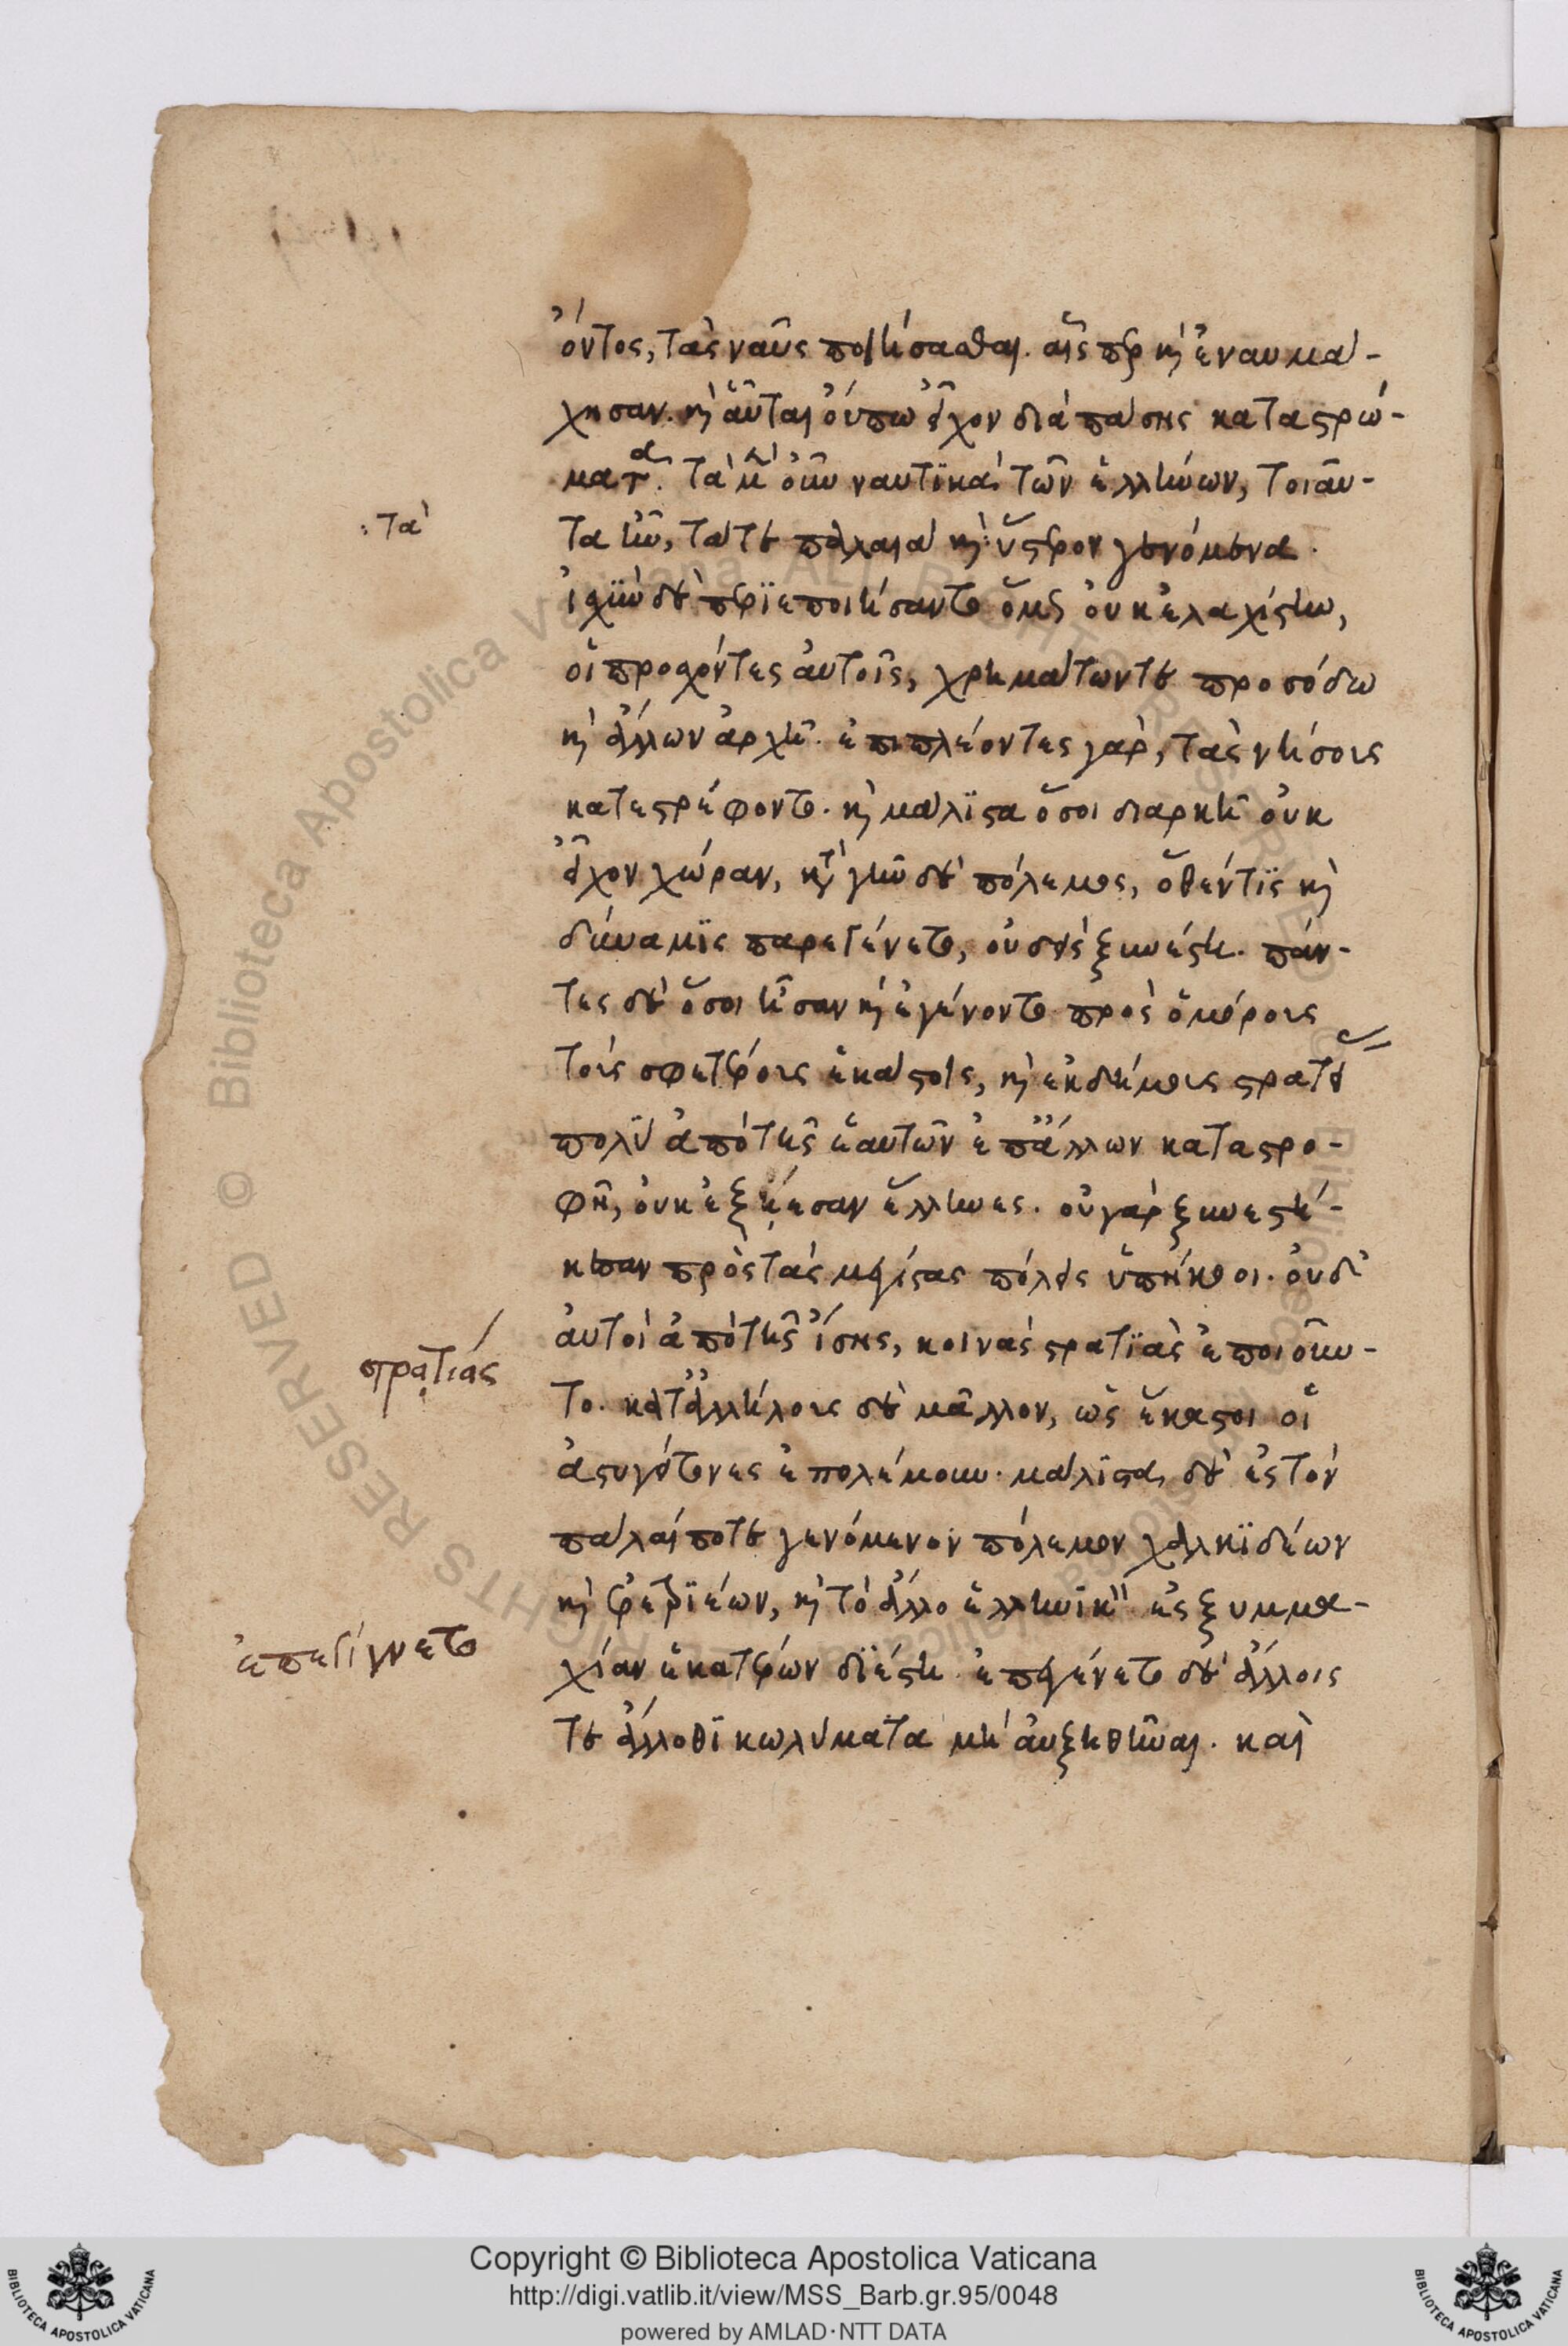 ὄντος, τὰς ναῦς ποιήσασθαι. αἷς περ καὶ ἐναυμά-
χησαν. καὶ αὗται οὔπω εἶχον διὰ πάσης καταστρώ-
ματα. τὰ μὲν οὖν ναυτικὰ τῶν ἑλλήνων, τοιαῦ-
: τὰ
τα ἦν, τά τε παλαιὰ καὶ : ὕστερον γενόμενα.
ἰσχὺν δὲ περιεποιήσαντο ὅμως οὐκ ἐλαχίστην,
οἱ προσχόντες αὐτοῖς, χρημάτων τε προσόδω
καὶ ἄλλων ἀρχῆ. ἐπιπλέοντες γὰρ, τὰς νήσους
κατεστρέφοντο. καὶ μάλιστα ὅσοι διαρκῆ οὐκ
εἶχον χώραν, κατὰ γῆν δὲ πόλεμος, ὅθεν τίς καὶ
δύναμις παρεγένετο, οὐδεὶς ξυνέστη. πάν-
τες δὲ ὅσοι ἦσαν καὶ ἐγένοντο πρὸς ὁμόρους
τοὺς σφετέρους ἑκάστοις, καὶ ἐκδήμους στρατείας
πολὺ ἀπὸ τῆς ἑαυτῶν ἐπ' ἄλλων καταστρο-
φῆ, οὐκ ἐξήεσαν ἕλληνες. οὐ γὰρ ξυνεστή-
κεσαν πρὸς τὰς μεγίστας πόλεις ὑπήκοοι. οὐδ'
αὐτοὶ ἀπὸ τῆς ἴσης, κοινὰς στρατιὰς ἐποιοῦν-
στρατιάς
το. κατ' ἀλλήλους δὲ μᾶλλον, ὡς ἕκαστοι οἱ
ἀστυγείτονες ἐπολέμουν. μάλιστα δὲ ἐς τὸν
πάλαι ποτὲ γενόμενον πόλεμον χαλκιδέων
καὶ ἐρετριέων, καὶ τὸ ἄλλο ἑλληνικὸν ἐς ξυμμα-
ἐπεγίγνετο
χίαν ἑκατέρων διέστη. ἐπεγένετο δὲ ἄλλοις
τε ἄλλοθι κωλύματα μὴ αὐξηθῆναι. καὶ
Copyright © Biblioteca Apostolica Vaticana
http://digi.vatlib.it/view/MSS_Barb.gr.95/0048
powered by AMLAD·NTT DATA